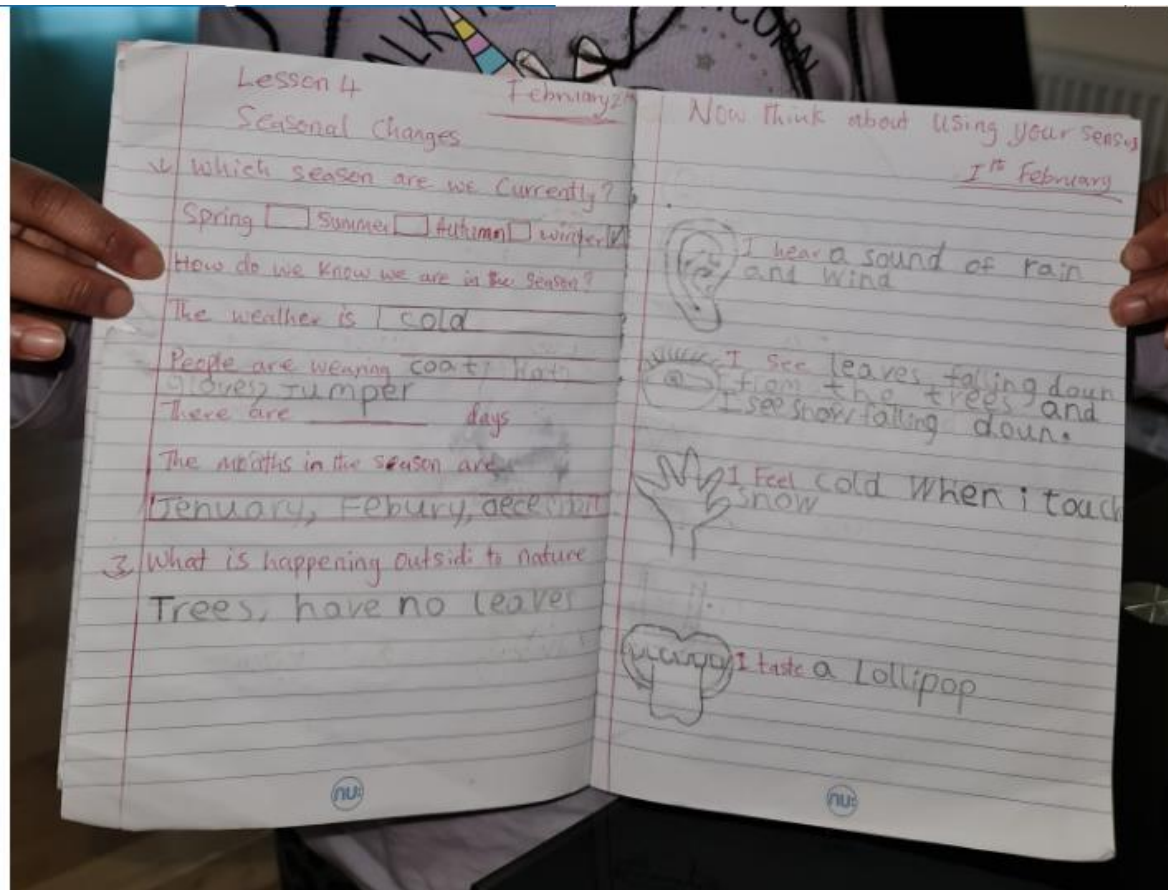 Lesson 4
February 2nd
Seasonal Changes
Which season are we Currently?
Spring Summer Autumn winter ✓
How do we know we are in the season?
The weather is cold
People are wearing coat, Hat,
gloves, Jumper
There are ________ days
The months in the season are
Jenuary, Febury,
3, What is happening outsidi to nature
Trees, have no leaves
nu:
Now think about using your senses
1st February
I hear a sound of rain
and wind
I see leaves, falling doun
from the trees and
I see snow falling doun.
I Feel cold When i touch
snow
I taste a Lollipop
nu:
ALK
CORN